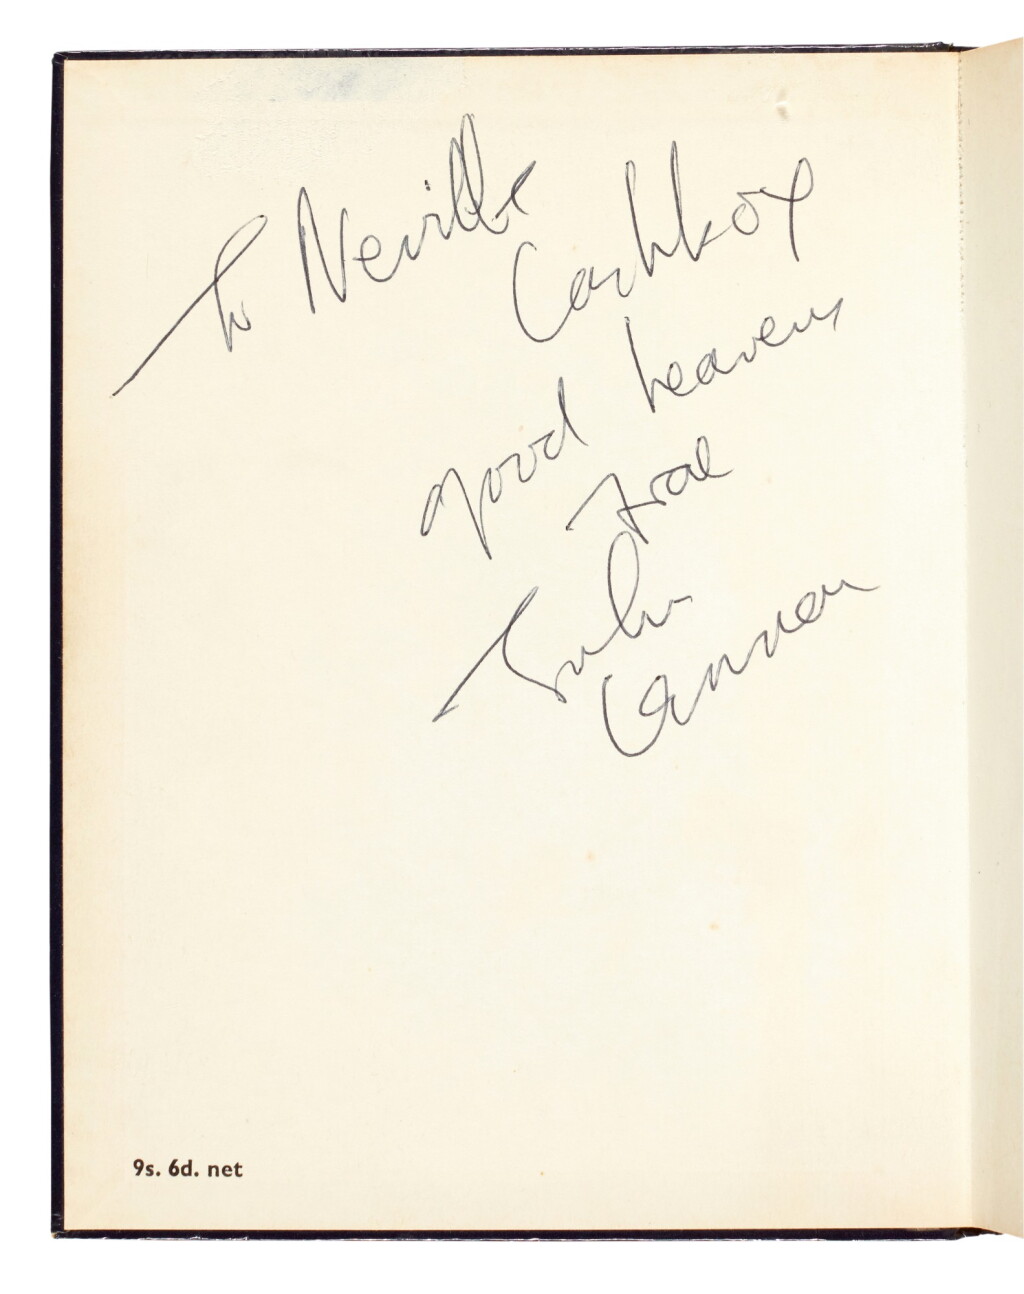 To Neville
Cashkox
good heavens
from
John
Lennon
9s. 6d. net